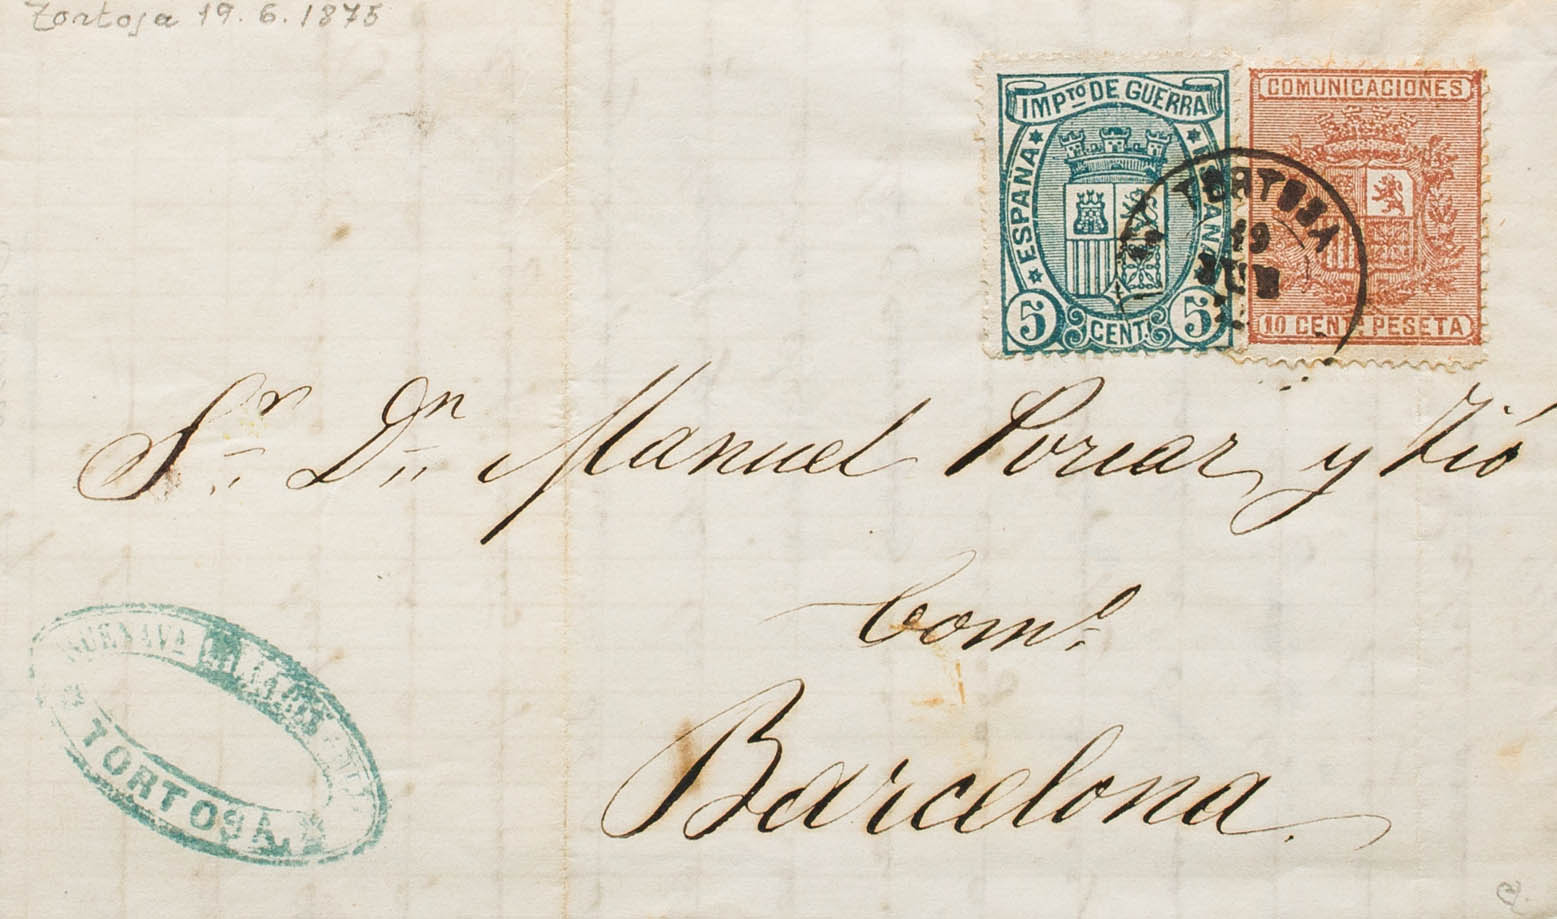 Tortosa 19.6.1875
IMPTO DE GUERRA
ESPAÑA
ESPAÑA
5 CENT. 5
COMUNICACIONES
10 CENT. PESETA
TORTOSA
19
JUN
Sr. Dn. Manuel Poriar y Tió
Como.
Barcelona.
TORTOSA.